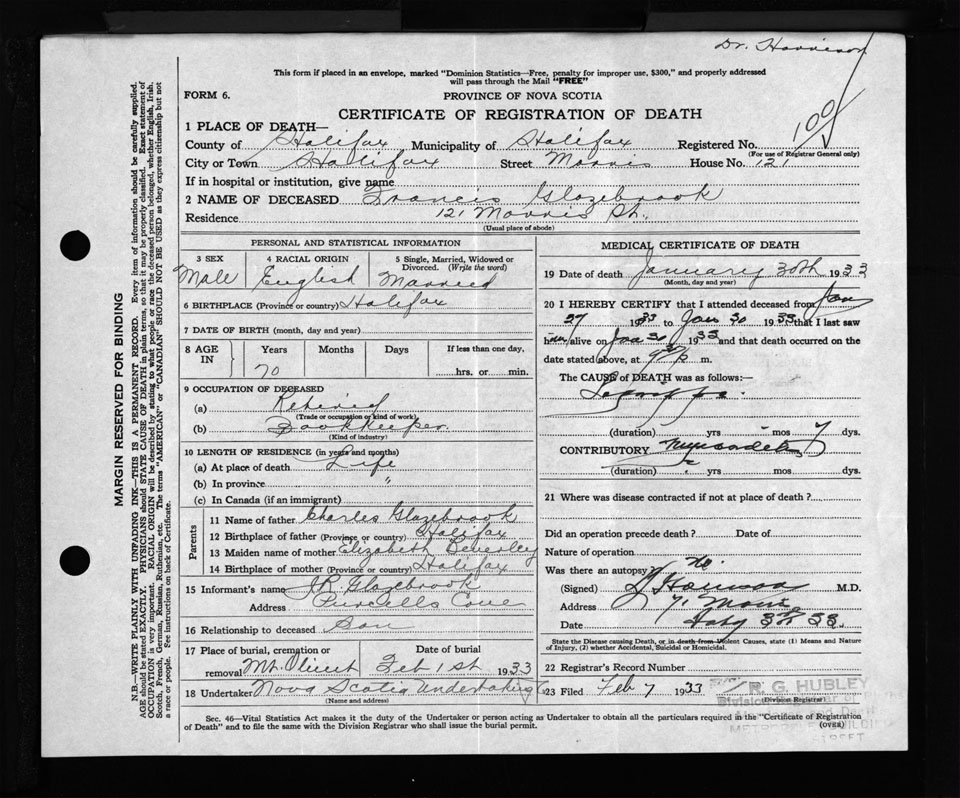 Dr. Harrison
This form if placed in an envelope, marked "Dominion Statistics—Free, penalty for improper use, $300," and properly addressed
will pass through the Mail "FREE"
FORM 6. PROVINCE OF NOVA SCOTIA
CERTIFICATE OF REGISTRATION OF DEATH
109
1 PLACE OF DEATH—
County of Halifax Municipality of Halifax Registered No.
(For use of Registrar General only)
City or Town Halifax Street Morris House No. 121
If in hospital or institution, give name
2 NAME OF DECEASED Francis Glazebrook
Residence 121 Morris St.
(Usual place of abode)
PERSONAL AND STATISTICAL INFORMATION
3 SEX 4 RACIAL ORIGIN 5 Single, Married, Widowed or Divorced. (Write the word)
Male English Married
6 BIRTHPLACE (Province or country) Halifax
7 DATE OF BIRTH (month, day and year)
8 AGE IN Years Months Days If less than one day,
70 hrs. or min.
9 OCCUPATION OF DECEASED
(a) Retired
(Trade or occupation or kind of work)
(b) Bookkeeper.
(Kind of industry)
10 LENGTH OF RESIDENCE (in years and months)
(a) At place of death Life
(b) In province "
(c) In Canada (if an immigrant)
Parents
11 Name of father Charles Glazebrook
12 Birthplace of father (Province or country) Halifax
13 Maiden name of mother Elizabeth Beverley
14 Birthplace of mother (Province or country) Halifax
15 Informant's name Glazebrook
Address Purcells Cove
16 Relationship to deceased Son
17 Place of burial, cremation or removal Date of burial
Mt. Olivet Feb 1st 1933
18 Undertaker Nova Scotia Undertaking Co
(Name and address)
MEDICAL CERTIFICATE OF DEATH
19 Date of death January 30th 1933
(Month, day and year)
20 I HEREBY CERTIFY that I attended deceased from Jan
27 1933 to Jan 30 1933 that I last saw
him alive on Jan 30 1933 and that death occurred on the
date stated above, at m.
The CAUSE of DEATH was as follows:—
La grippe.
(duration) yrs mos 7 dys.
CONTRIBUTORY
(duration) yrs mos dys.
21 Where was disease contracted if not at place of death?
Did an operation precede death? Date of
Nature of operation
Was there an autopsy No.
(Signed) M.D.
Address 71 Morris
Date Feby 3rd 33.
State the Disease causing Death, or in death from Violent Causes, state (1) Means and Nature
of Injury, (2) whether Accidental, Suicidal or Homicidal.
22 Registrar's Record Number
23 Filed Feb 7 1933 R. G. HUBLEY
(Division Registrar)
Sec. 46—Vital Statistics Act makes it the duty of the Undertaker or person acting as Undertaker to obtain all the particulars required in the "Certificate of Registration
of Death" and to file the same with the Division Registrar who shall issue the burial permit. (OVER)
MARGIN RESERVED FOR BINDING
N.B.—WRITE PLAINLY WITH UNFADING INK—THIS IS A PERMANENT RECORD. Every item of information should be carefully supplied.
AGE should be stated EXACTLY. PHYSICIANS should STATE CAUSE OF DEATH in plain terms, so that it may be properly classified. Exact statement of
OCCUPATION is very important. RACIAL ORIGIN will be described by stating to what people or race the deceased person belonged, whether English, Irish,
Scotch, French, German, Russian, Ruthenian, etc. The terms "AMERICAN" or "CANADIAN" SHOULD NOT BE USED as they express citizenship but not
a race or people. See instructions on back of Certificate.